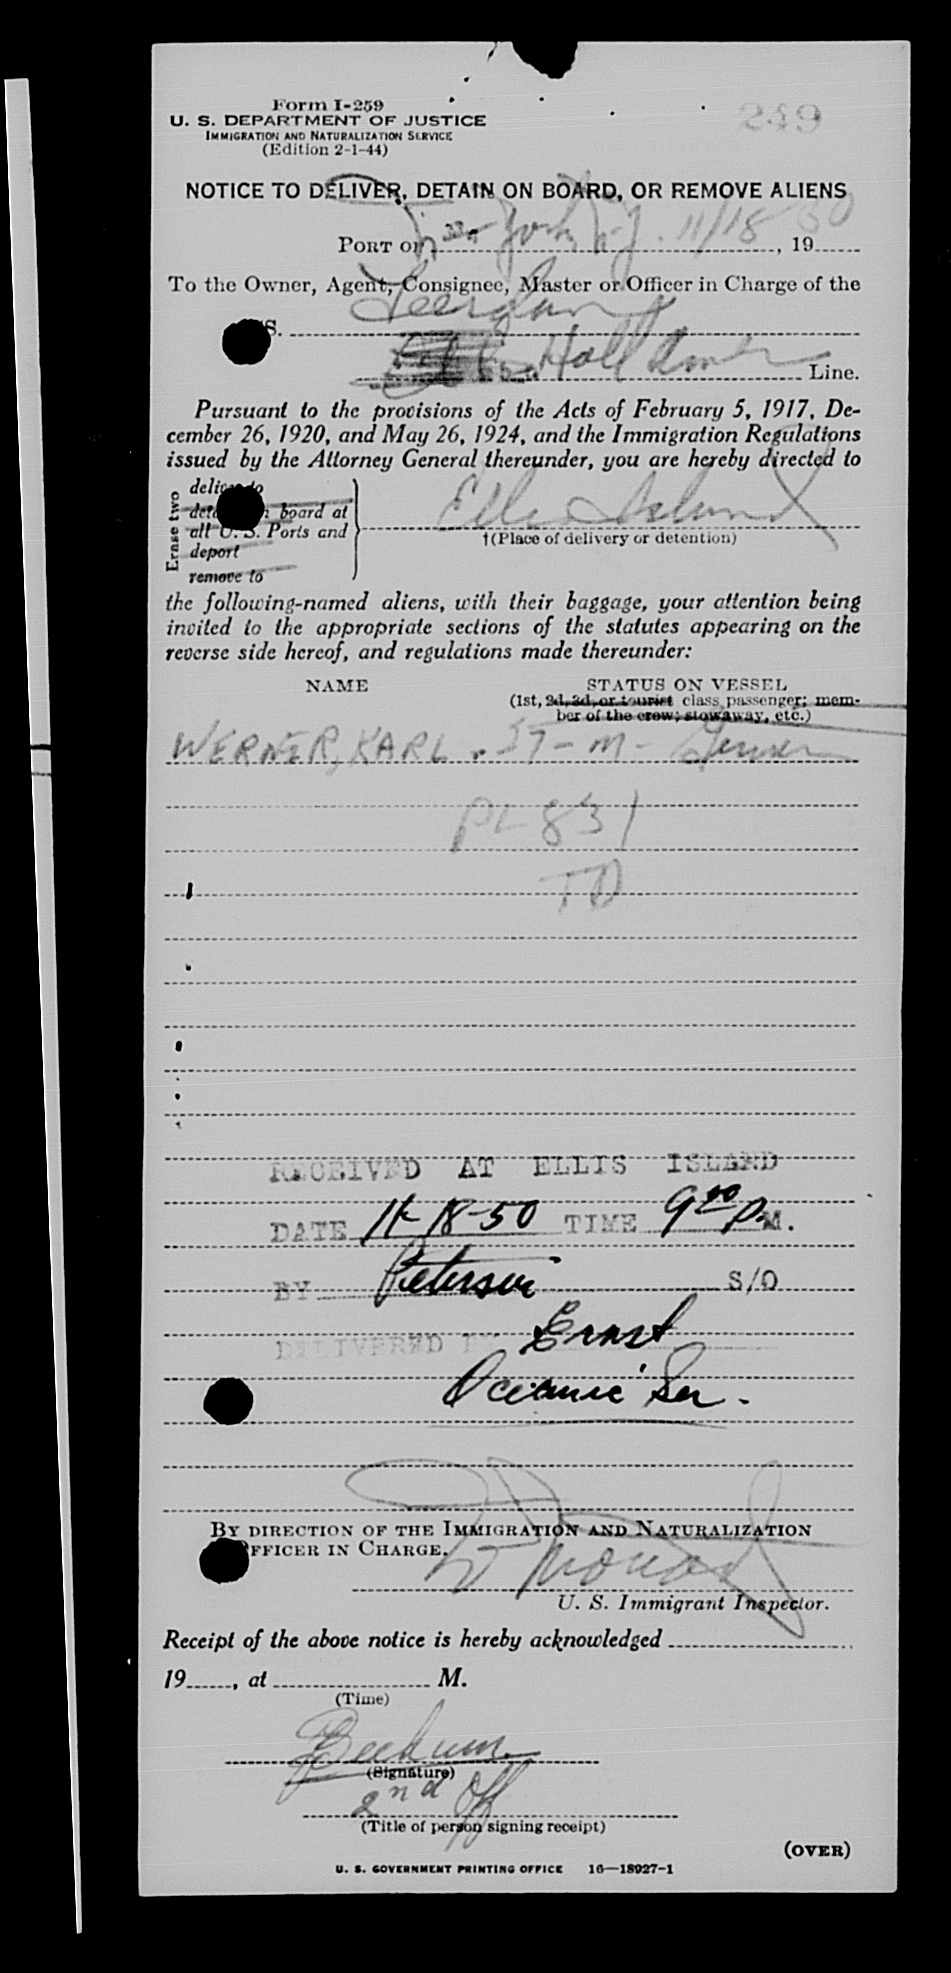 Form I-259
249
U. S. DEPARTMENT OF JUSTICE
IMMIGRATION AND NATURALIZATION SERVICE
(Edition 2-1-44)
NOTICE TO DELIVER, DETAIN ON BOARD, OR REMOVE ALIENS
PORT OF New York, N.Y. 11/18 50, 19
To the Owner, Agent, Consignee, Master or Officer in Charge of the
S.
Line.
Pursuant to the provisions of the Acts of February 5, 1917, De-
cember 26, 1920, and May 26, 1924, and the Immigration Regulations
issued by the Attorney General thereunder, you are hereby directed to
Erase two
deliver to
board at
all U. S. Ports and
deport
remove to
Ellis Island
†(Place of delivery or detention)
the following-named aliens, with their baggage, your attention being
invited to the appropriate sections of the statutes appearing on the
reverse side hereof, and regulations made thereunder:
NAME STATUS ON VESSEL
(1st, 2d, 3d, or tourist class passenger; mem-
ber of the crew; stowaway, etc.)
WERNER, KARL - M - German
PL 831
TD
RECEIVED AT ELLIS ISLAND
DATE 11-18-50 TIME 9 00 P.M.
BY Peterson S/O
DELIVERED BY Ernst
Oceanic Ser.
BY DIRECTION OF THE IMMIGRATION AND NATURALIZATION
OFFICER IN CHARGE.
U. S. Immigrant Inspector.
Receipt of the above notice is hereby acknowledged
19, at M.
(Time)
(Signature)
2nd Off
(Title of person signing receipt)
(OVER)
U. S. GOVERNMENT PRINTING OFFICE 16—18927-1